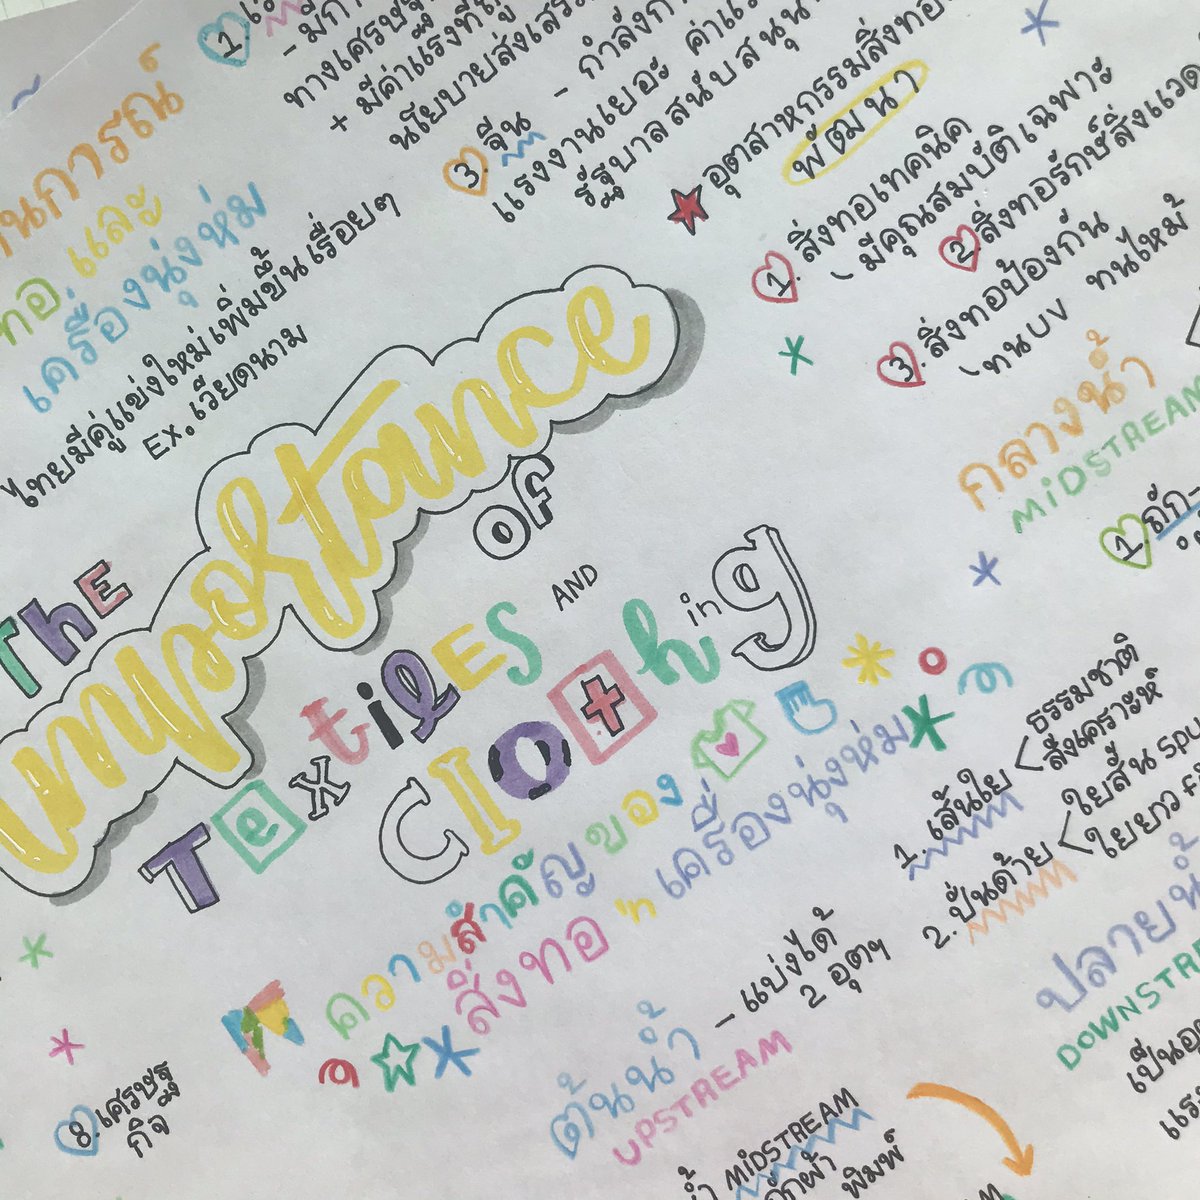 1.
- มีกา
ทางเศรษฐ
+ มีค่าแรงที่ถู
นโยบายส่งเสร
3. จีน - กำลังกา
แรงงานเยอะ ค่าแร
รัฐบาลสนับสนุน
นการณ์
ทอ และ
เครื่องนุ่งห่ม
ไทยมีคู่แข่งใหม่เพิ่มขึ้นเรื่อยๆ
EX. เวียดนาม
อุตสาหกรรมสิ่งทอ
พัฒนา
1. สิ่งทอเทคนิค
มีคุณสมบัติเฉพาะ
2. สิ่งทอรักษ์สิ่งแวด
3. สิ่งทอป้องกัน
ทนUV ทนไหม้
กลางน้ำ
MIDSTREAM
1. ถัก-
The
importance
OF
Textiles AND
Clothing
ความสำคัญของ
สิ่งทอ 'n เครื่องนุ่งห่ม
ต้นน้ำ - แบ่งได้
UPSTREAM 2 อุตฯ
1. เส้นใย < ธรรมชาติ
สังเคราะห์
2. ปั่นด้าย < ใยสั้น SPU
ใยยาว F
ปลายน้ำ
DOWNSTRE
เป็นอุ
แร
8. เศรษฐ
กิจ
MIDSTREAM
พิมพ์